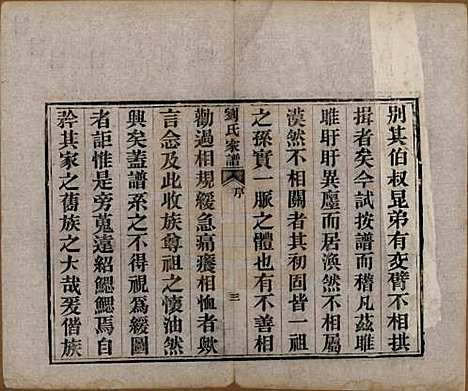 別其伯叔昆弟有交臂不相拱
揖者矣今試按譜而稽凡茲雎
雎盱盱異廛而居渙然不相屬
漠然不相關者其初固皆一祖
之孫實一脈之體也有不善相
劉氏家譜 序 三
勸過相規緩急痛癢相恤者歟
言念及此收族尊祖之懷油然
興矣蓋譜系之不得視為緩圖
者詎惟是旁蒐遠紹鰓鰓焉自
矜其家之舊族之大哉爰偕族